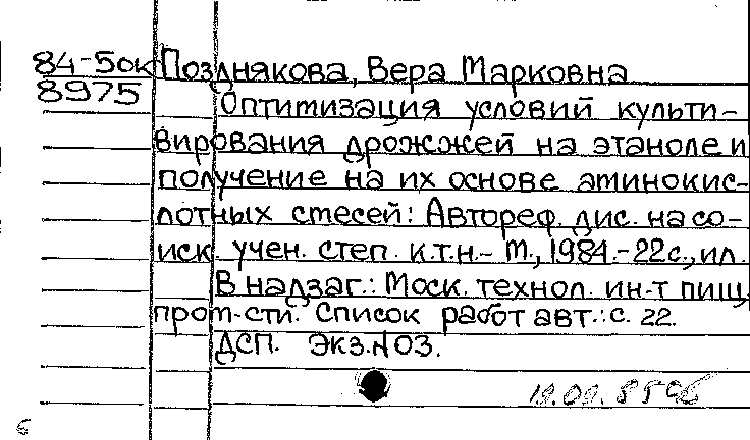 84-5ок Позднякова, Вера Марковна
8975 Оптимизация условий культи-
вирования дрожжей на этаноле и
получение на их основе аминокис-
лотных смесей: Автореф. дис. на со-
иск. учен. степ. к.т.н.- М., 1984.-22с., ил.
В надзаг.: Моск. технол. ин-т пищ.
пром-сти. Список работ авт.: с. 22.
ДСП. Экз.N03.